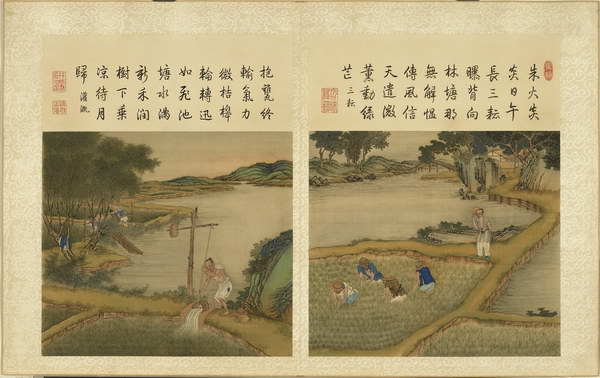 朱火炎
炎日午
長三耘
曝背向
林塘那
無解慍
傳風信
天遣微
薰動綠
芒 三耘
抱甕終
輸氣力
微桔槔
輪轉迅
如飛池
塘水滿
新禾潤
樹下乘
涼待月
歸 灌溉